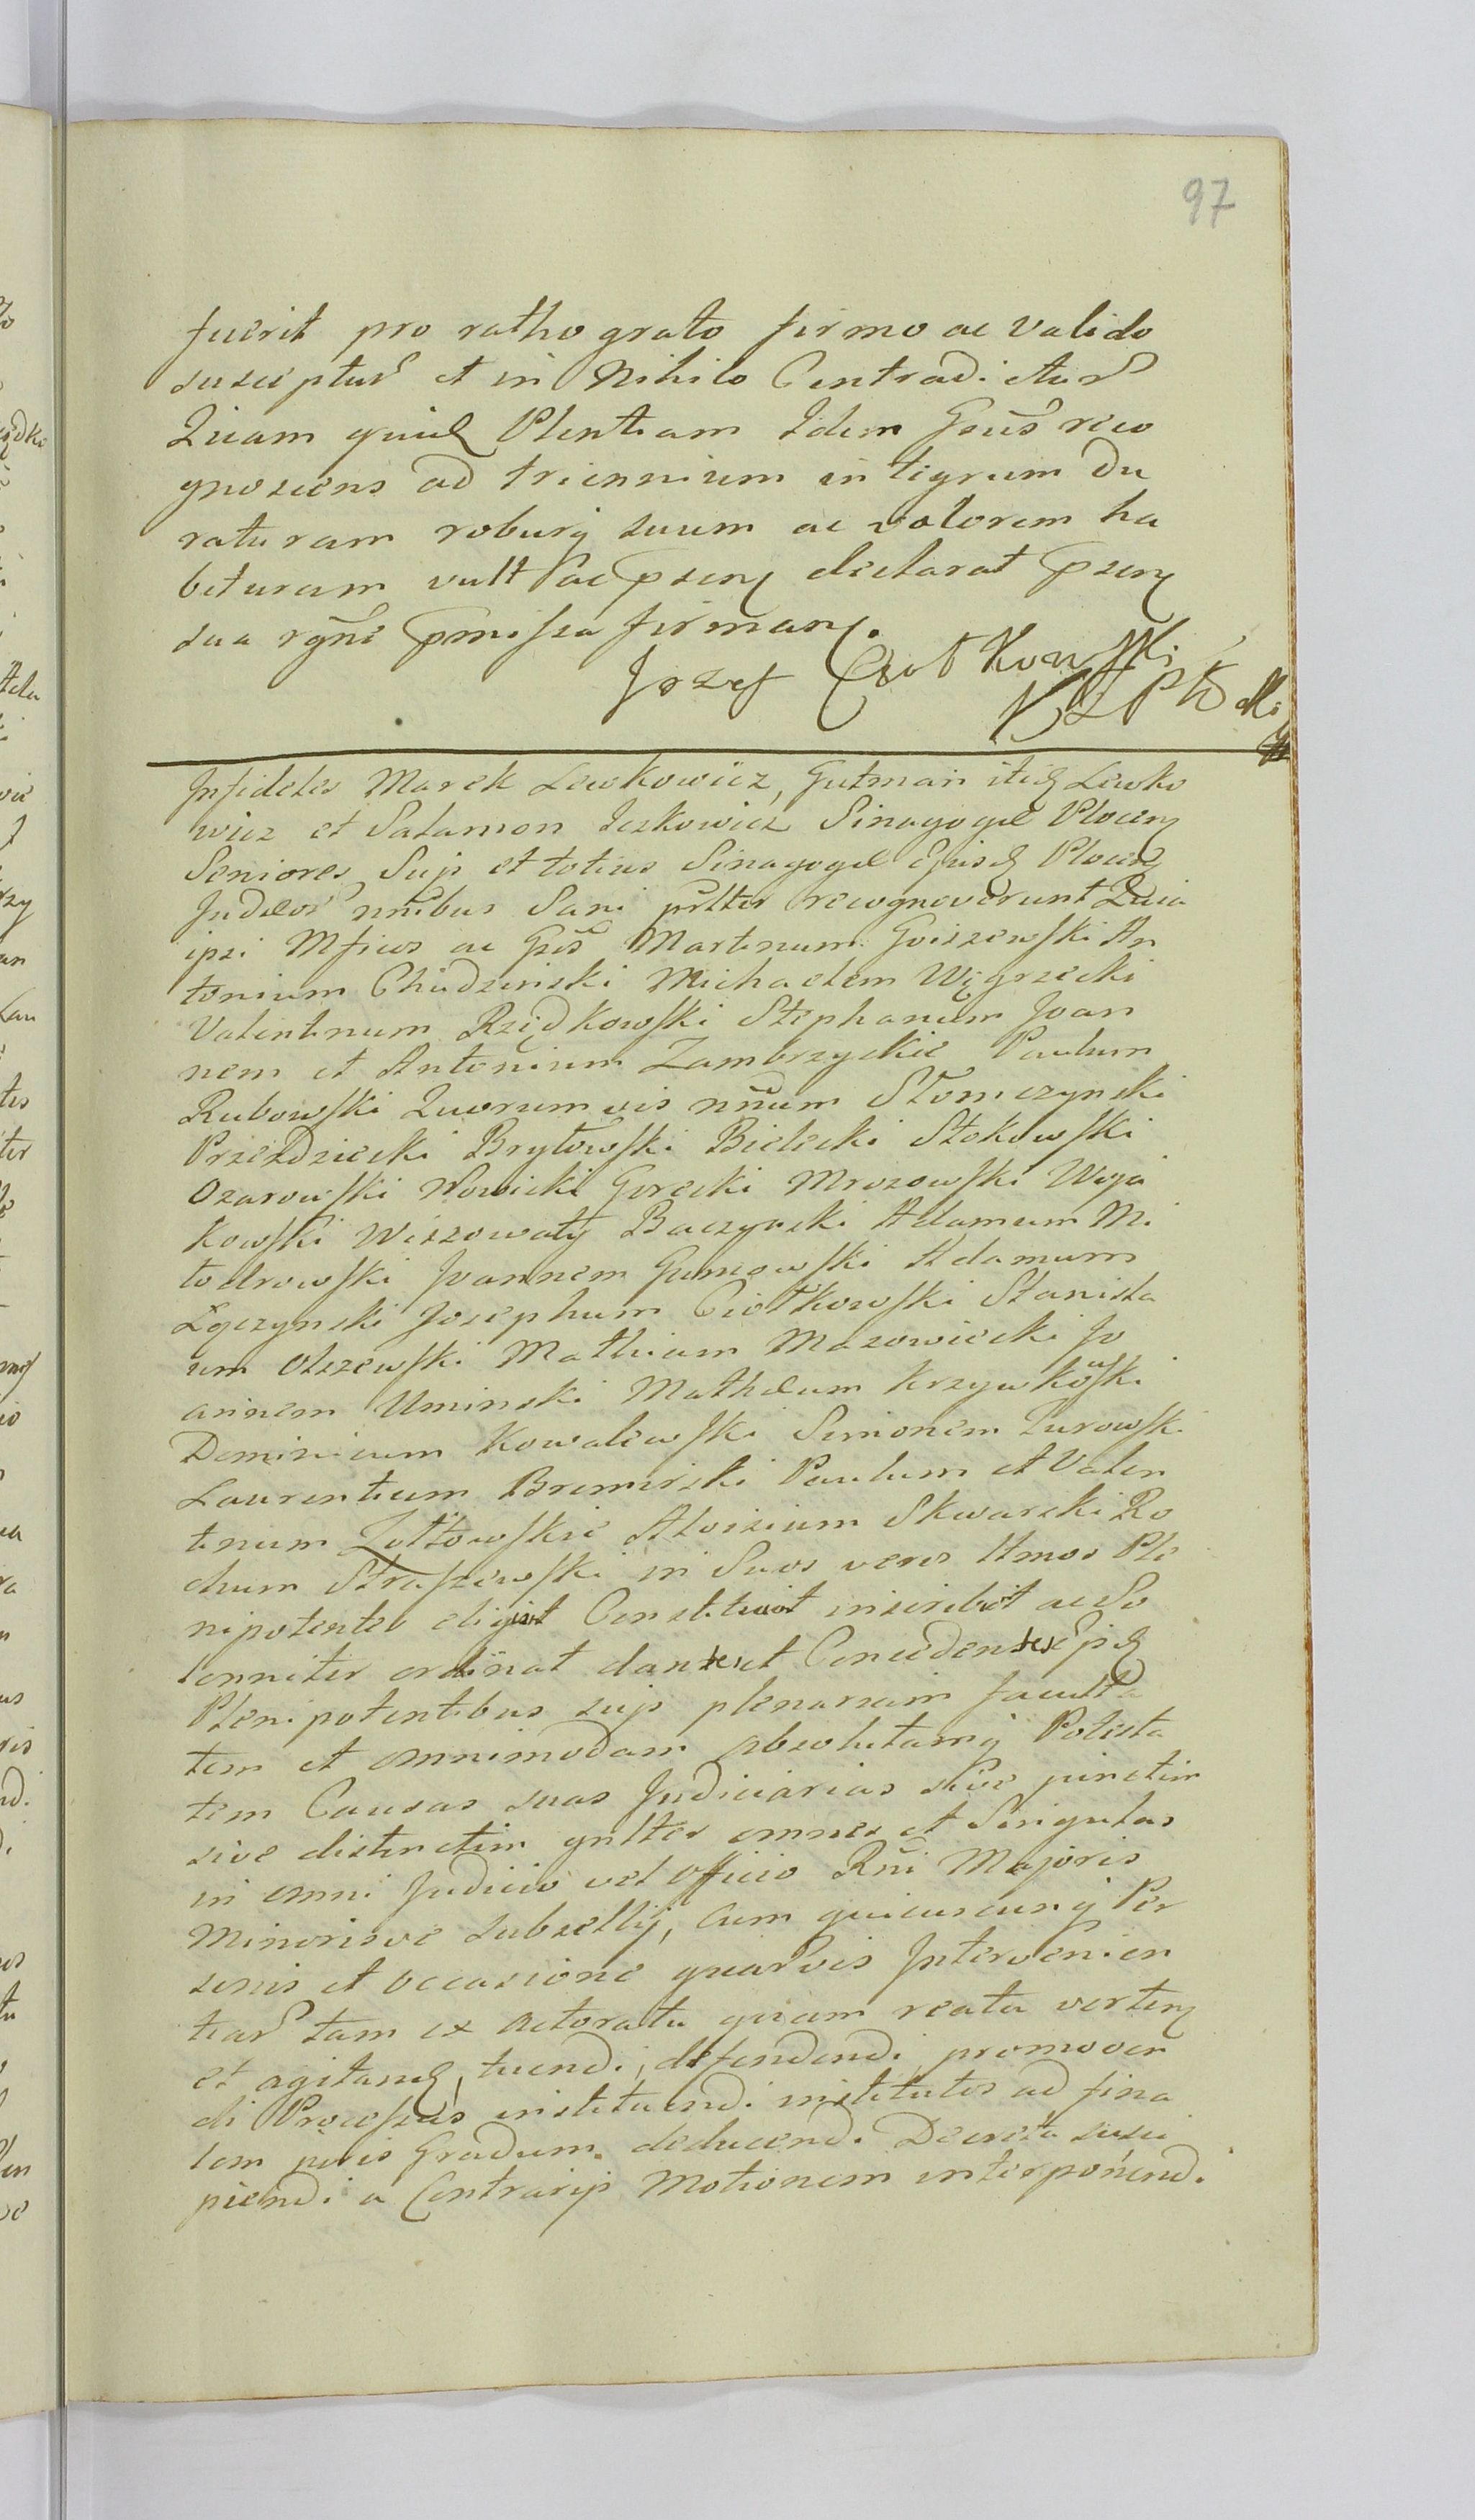 97
fuerit pro ratho grato firmo ac valido
suscepturꝰ et in Nihilo Contradicturꝰ
Quam quid Plentiam Idem Gnũs reco
gnoscens ad triennium integrum du
raturam roburq suum ac valorem ha
bituram vult ac psenq declarat psenq
sua rgñe pmissa firmanq.
Jozef Ciotkowski
Infideles Marek Lewkowicz, Gutman itid Lewko
wicz et Salamon Ickowicz Sinagogæ Plocenq
Seniores Suo et totius Sinagogæ Ejusd Plocenq
Judæorꝰ nñibus Sani prltter recognoverunt Quia
ipsi Mficos ac Gñs Martinum Goiszewski An
tonium Chudzinski Michaelem Węgrzecki
Valentinum Rządkowski Stephanum Joan
nem et Antonium Zambrzyckie Paulum
Rubowski Quorumvis nñum Słomczynski
Przezdziecki Bryłowski Bielecki Stokowski
Ozarowski Nowicki Gorecki Mrozowski Woja
kowski Wiszowaty Baczynski Adamum Mi
lodrowski Joannem Gumowski Adamum
Łączynski Josephum Ciołkowski Stanisla
um Olszewski Mathiam Mazowiecki Jo
annem Uminski Mathæum Krzywkowski
Dominicum Kowalewski Simonem Zurowski
Laurentium Bromirski Paulum et Valen
tinum Zołtowskie Aloisium Skwarski Ro
chum Straszewski in Suos veros Ltmos Ple
nipotentes eligit Constituit inscribit ac So
lenniter ordinat dantes et Concedentes ipsd
Plenipotentibus suis plenariam faculta
tem et omnimodam absolutamq Potesta
tem Causas suas Judiciarias sive junctim
sive distinctim gnlter omnes et Singulas
in omni Judicio vel Officio Rñi Majoris
Minorisve Subsellij, cum quicuscunq Per
sonis et occasione quarꝰvis Intervenien
tiarꝰ tam ex Actoratu quam reatu vertenq
et agitand, tuendi, defendendi promoven
di Processus instituendi institutos ad fina
lem juris Gradum deducendi Decreta susci
piendi a Contrarijs Motionem interponendi